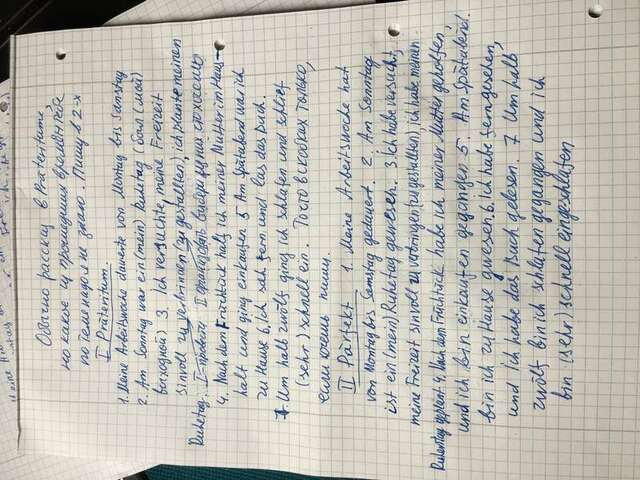 Обычно рассказ в Präteritum,
но какое из прошедших времён тебе
по теме надо я не знаю. Пишу в 2-х
I Präteritum.
1. Meine Arbeitswoche dauerte von Montag bis Samstag
2. Am Sonntag war ein (mein) Ruhetag (
выходной) 3. Ich versuchte, meine Freizeit
sinvoll zu verbringen (zu gestallten), ich plante meinen
Ruhetag. I-провести II
4. Nach dem Frühstück half ich meiner Mutter im Haus-
halt und ging einkaufen 5 Am Spätabend war ich
zu Hause 6. Ich sah fern und las das Buch.
7. Um halb zwölf ging ich schlafen und schlief
(sehr) schnell ein. То что в скобках только,
если хочешь пиши.
II Perfekt 1. Meine Arbeitswoche hat
von Montag bis Samstag gedauert. 2. Am Sonntag
ist ein (mein) Ruhetag gewesen. 3. Ich habe versucht,
meine Freizeit sinvoll zu verbringen (zu gestallten), ich habe meinen
Ruhentag geplant 4. Nach dem Frühstück habe ich meiner Mutter geholfen,
und ich bin einkaufen gegangen 5. Am Spätabend
bin ich zu Hause gewesen. 6. Ich habe ferngesehen,
und Ich habe das Buch gelesen. 7. Um halb
zwölf bin ich schlafen gegangen und ich
bin (sehr) schnell eingeschlafen